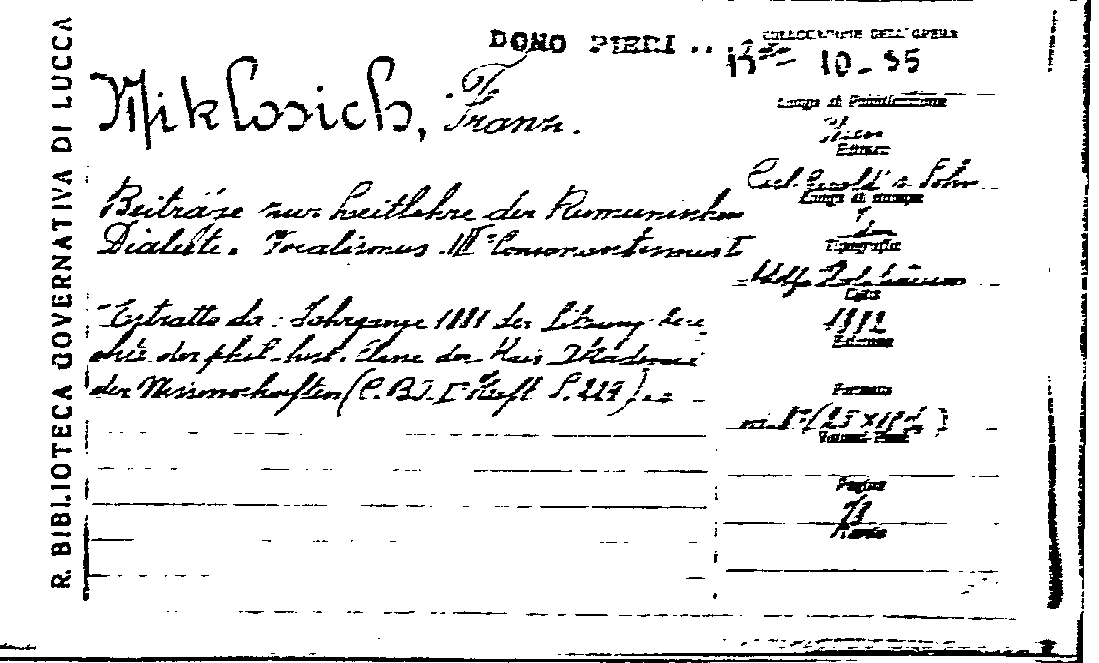 R. BIBLIOTECA GOVERNATIVA DI LUCCA
DONO PIERI ..
COLLOCAZIONE DELL'OPERA
10-55
Miklosich, Franz.
Beiträge zur Lautlehre der Rumunischen
Dialekte. Vocalismus III Consonantismus I
Estratto da: Jahrgange 1881 der Sitzungsbere
der phil.-hist. Classe der Kais Akademie
der Wissenschaften (C. Bd. I Heft S. 229)
Luogo di Pubblicazione
Wien
Editore
Carl Gerold's Sohn
Luogo di stampa
Tipografia
Adolf Holzhausen
Data
1882
Edizione
Formato
in 8° (25 x
Pagine